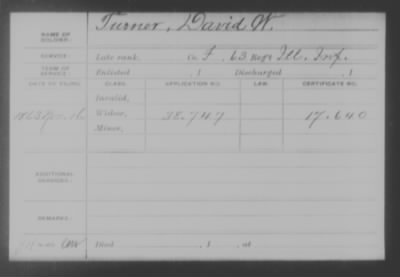 NAME OF SOLDIER: Turner, David W.
SERVICE: Late rank, Co. F, 63 Reg't Ill. Inf.
TERM OF SERVICE: Enlisted , 1 Discharged , 1
DATE OF FILING. CLASS. APPLICATION NO. LAW. CERTIFICATE NO.
Invalid,
1863 16 Widow, 38.747 17.640
Minor,
ADDITIONAL SERVICES:
REMARKS:
Died , 1 , at